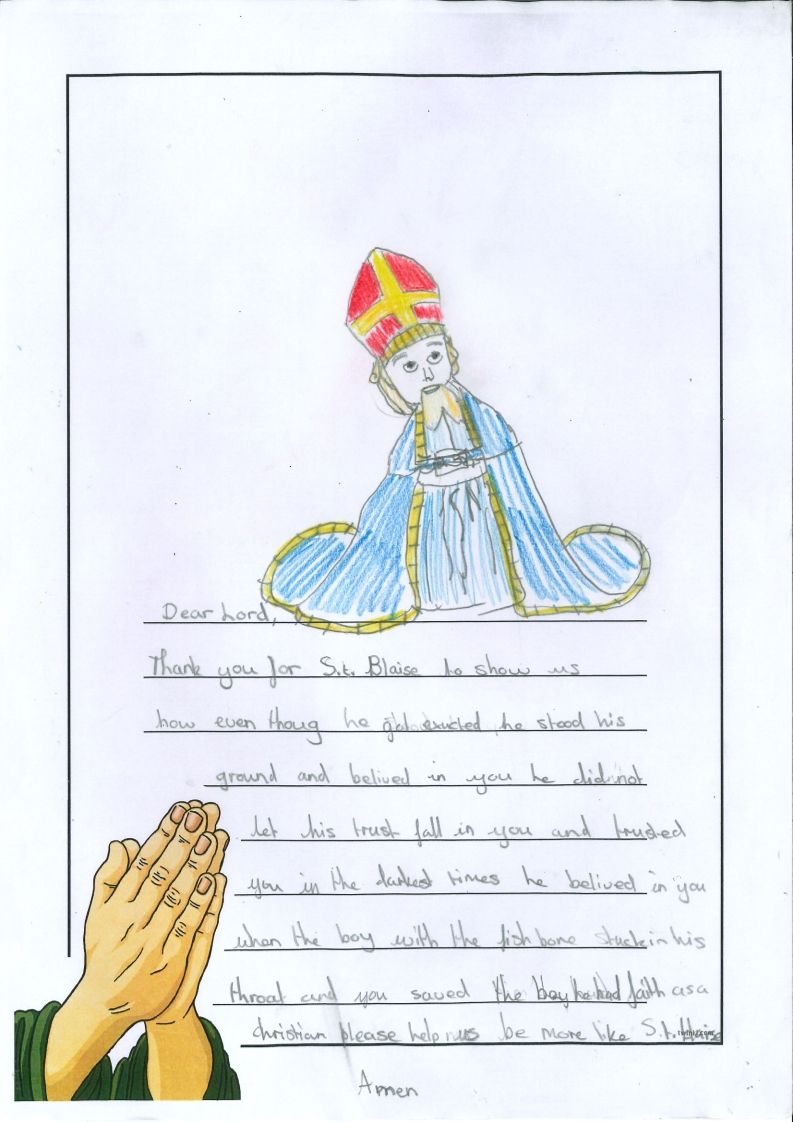 Dear Lord,
Thank you for S.t. Blaise to show us
how even thoug he got exucted he stood his
ground and belived in you he did not
let his trust fall in you and trusted
you in the darkest times he belived in you
when the boy with the fish bone stuck in his
throat and you saved the boy he had faith as a
christian please help us be more like S.t.
Amen